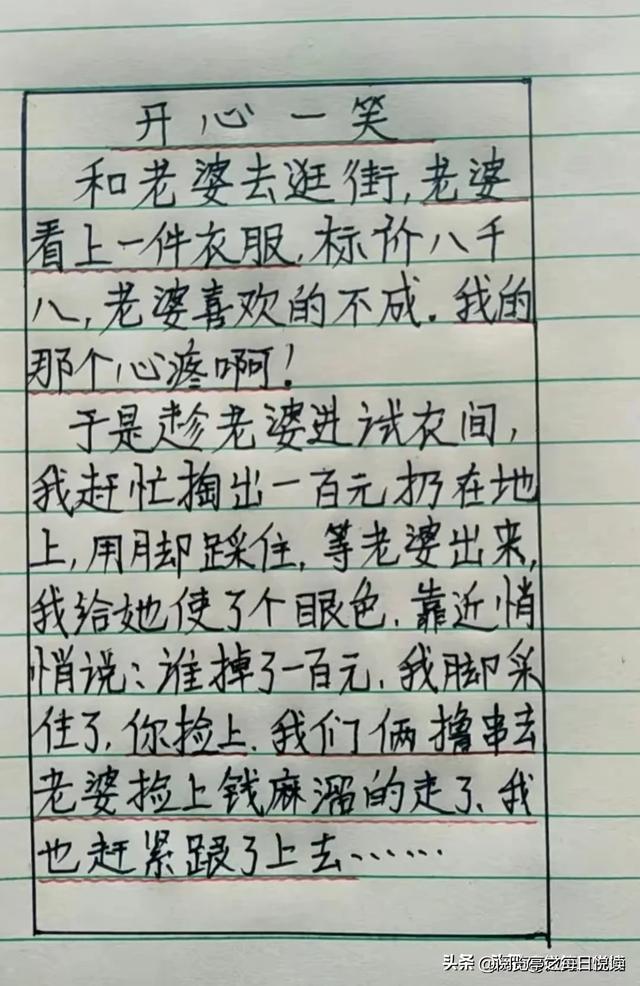 开心一笑
和老婆去逛街,老婆
看上一件衣服,标价八千
八,老婆喜欢的不成.我的
那个心疼啊!
于是趁老婆进试衣间,
我赶忙掏出一百元扔在地
上,用脚踩住,等老婆出来,
我给她使了个眼色.靠近悄
悄说:谁掉了一百元.我脚采
住了,你捡上.我们俩撸串去
老婆捡上钱麻溜的走了、我
也赶紧跟了上去……
头条